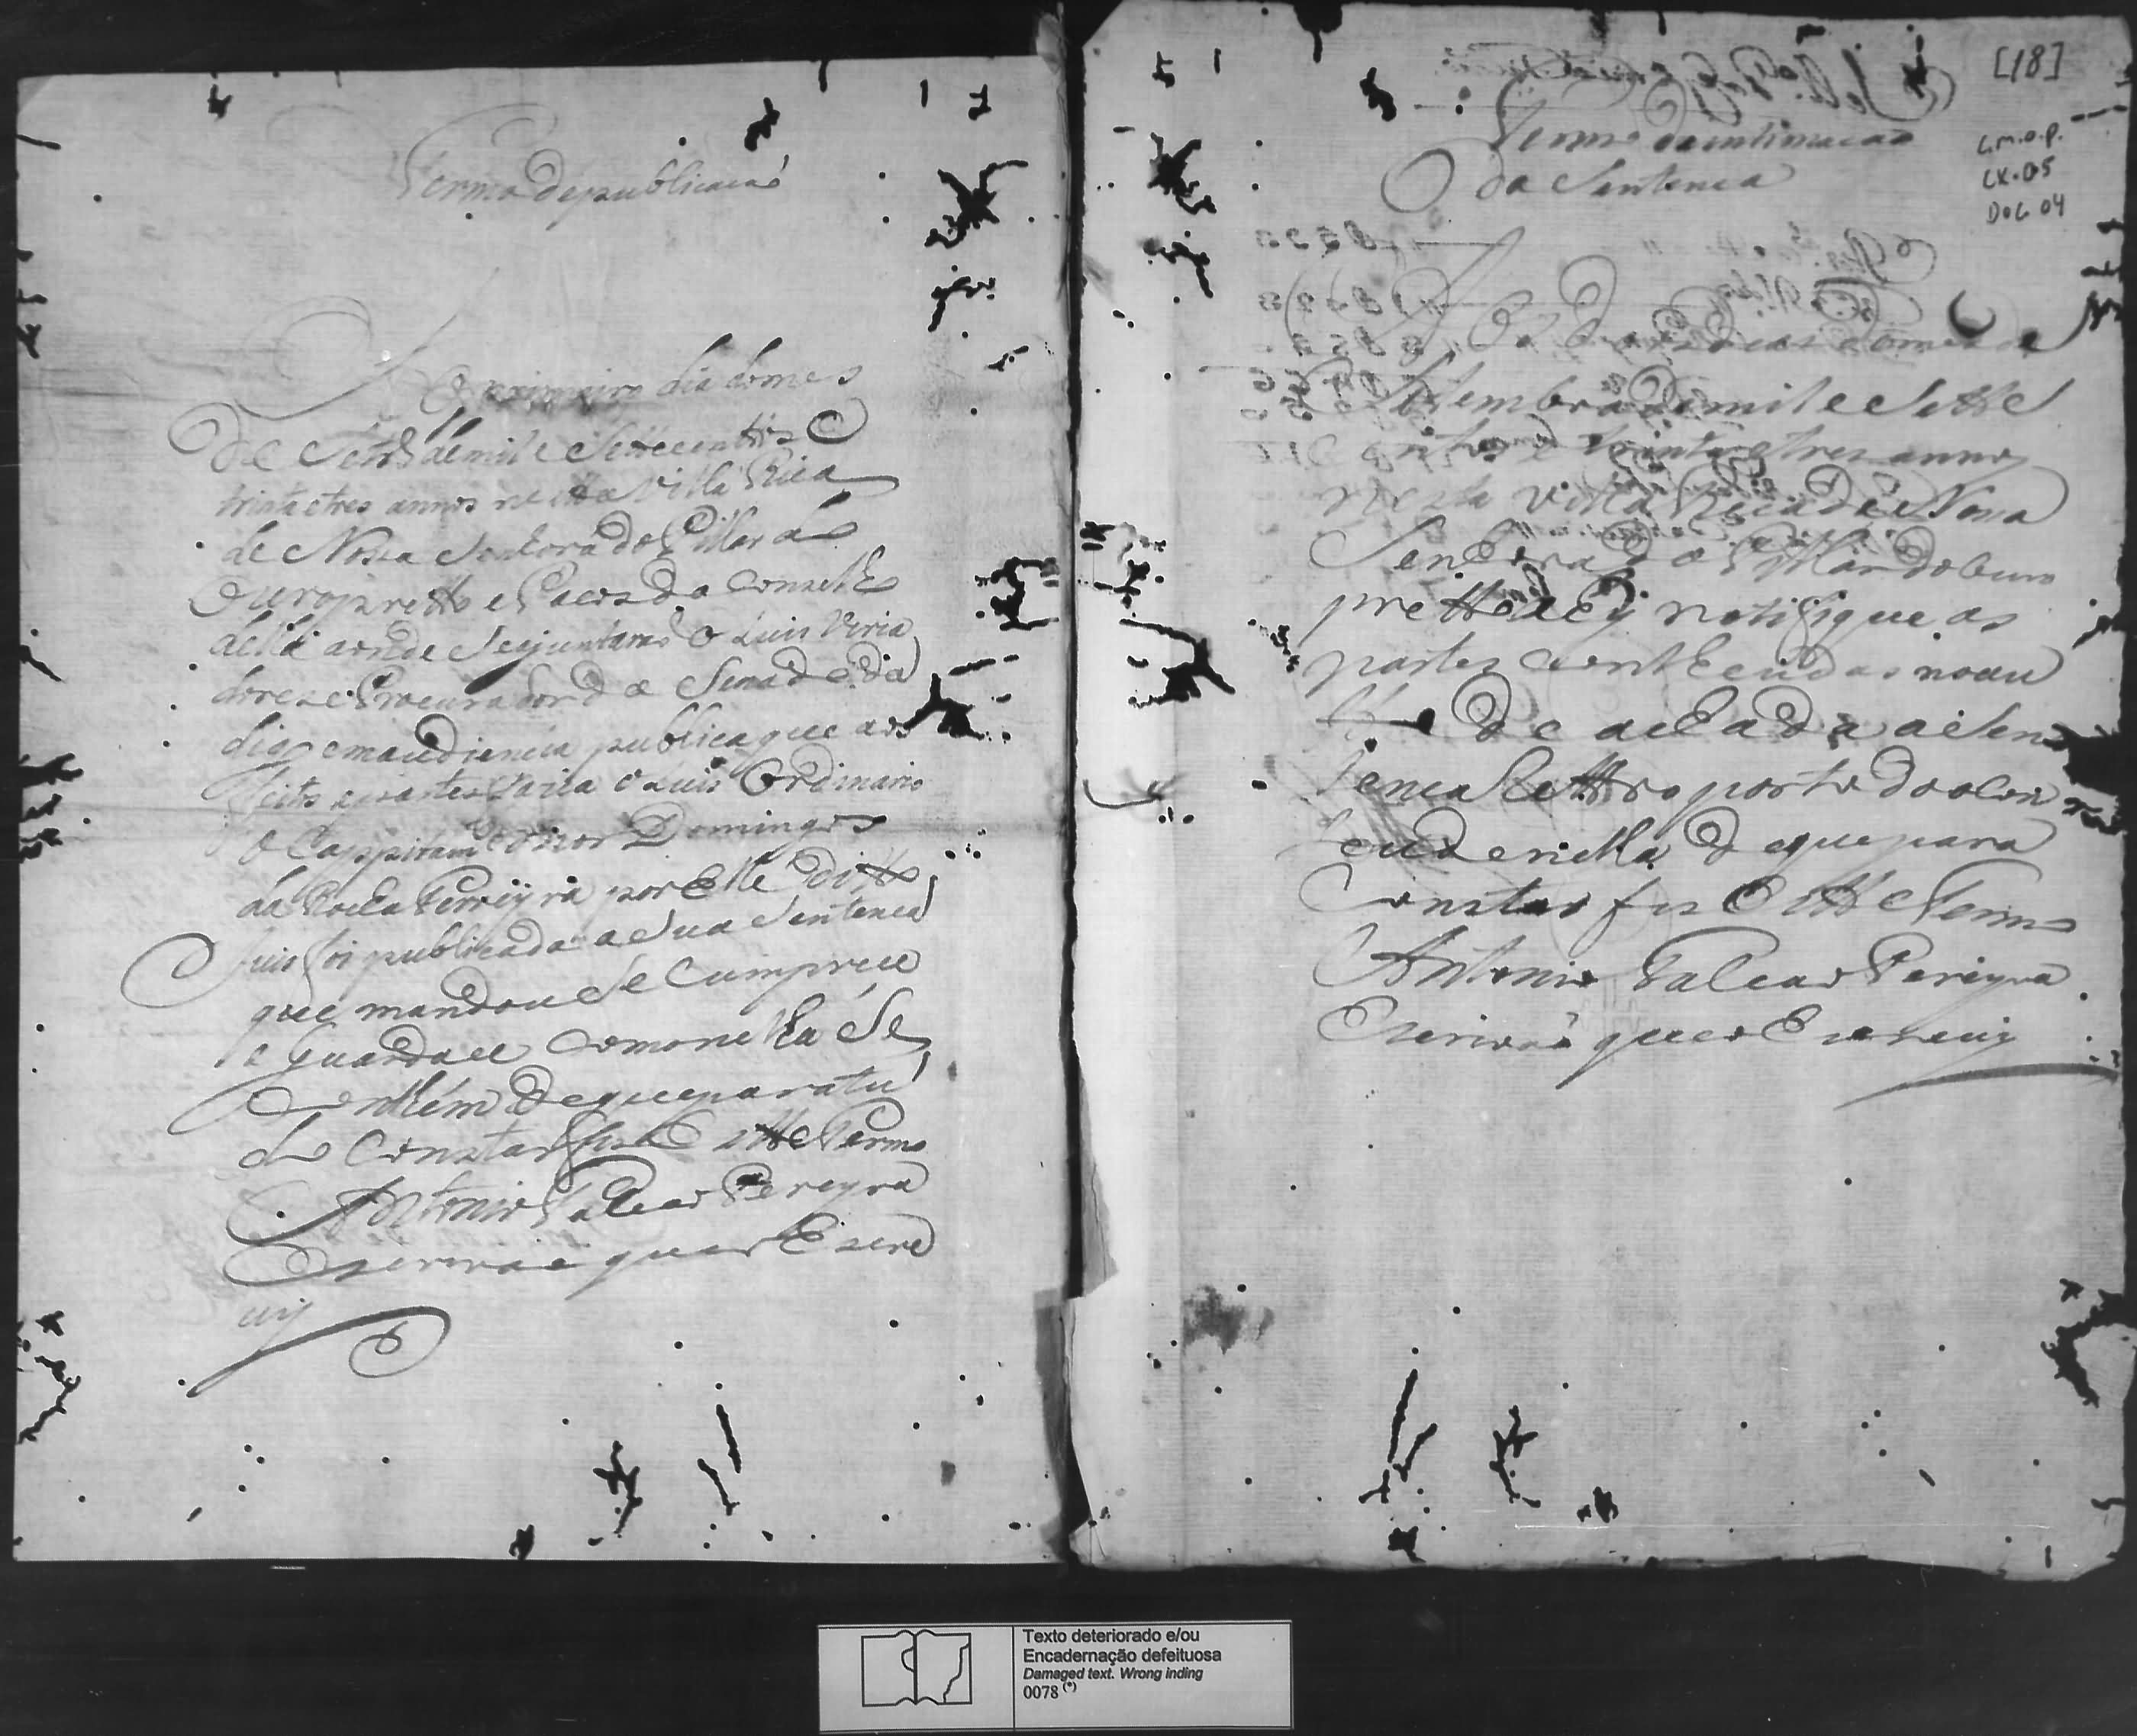 Termo de publicacaõ
Ao primeiro dia do mes
de Setr.º de mil e Settecenttos e
trinta e tres annos nestta Villa Rica
de Nossa Senhora do Pillar do
Ouro pretto e Pacos do Conselho
della aonde se ajuntaraõ o Juis Veria
dores e Procurador do Senado da
em audiencia publica que aos
feitos e partes fazia o Juis Ordinario
o Cappitam mor Domingos
da Rocha Ferreyra por Elle ditto
Juis foi publicada a Sua Sentenca
que mandou Se Cumprice
e Guardace Como nella Se
Conthém de que para tu
do Constar fis Estte Termo
Antonio Falcaõ Pereyra
Escrivaõ que o Escre
uij
[18]
C.M.O.P.
CX. 05
DOC. 04
Termo da intimacaõ
da Sentenca
Aos dias do mes de
Settembro de mil e Sette
centtos e trinta e tres annos
nesta Villa Rica de Nossa
Senhora do Pillar do Ouro
pretto Ahy notifique as
partes contheudas no au
tto de achada a Sen
tenca Rettro porto do o Con
teudo nella de que para
Constar fis Estte Termo
Antonio Falcaõ Pereyra
Escrivaõ que o Escreuy
Texto deteriorado e/ou
Encadernação defeituosa
Damaged text. Wrong inding
0078 (*)